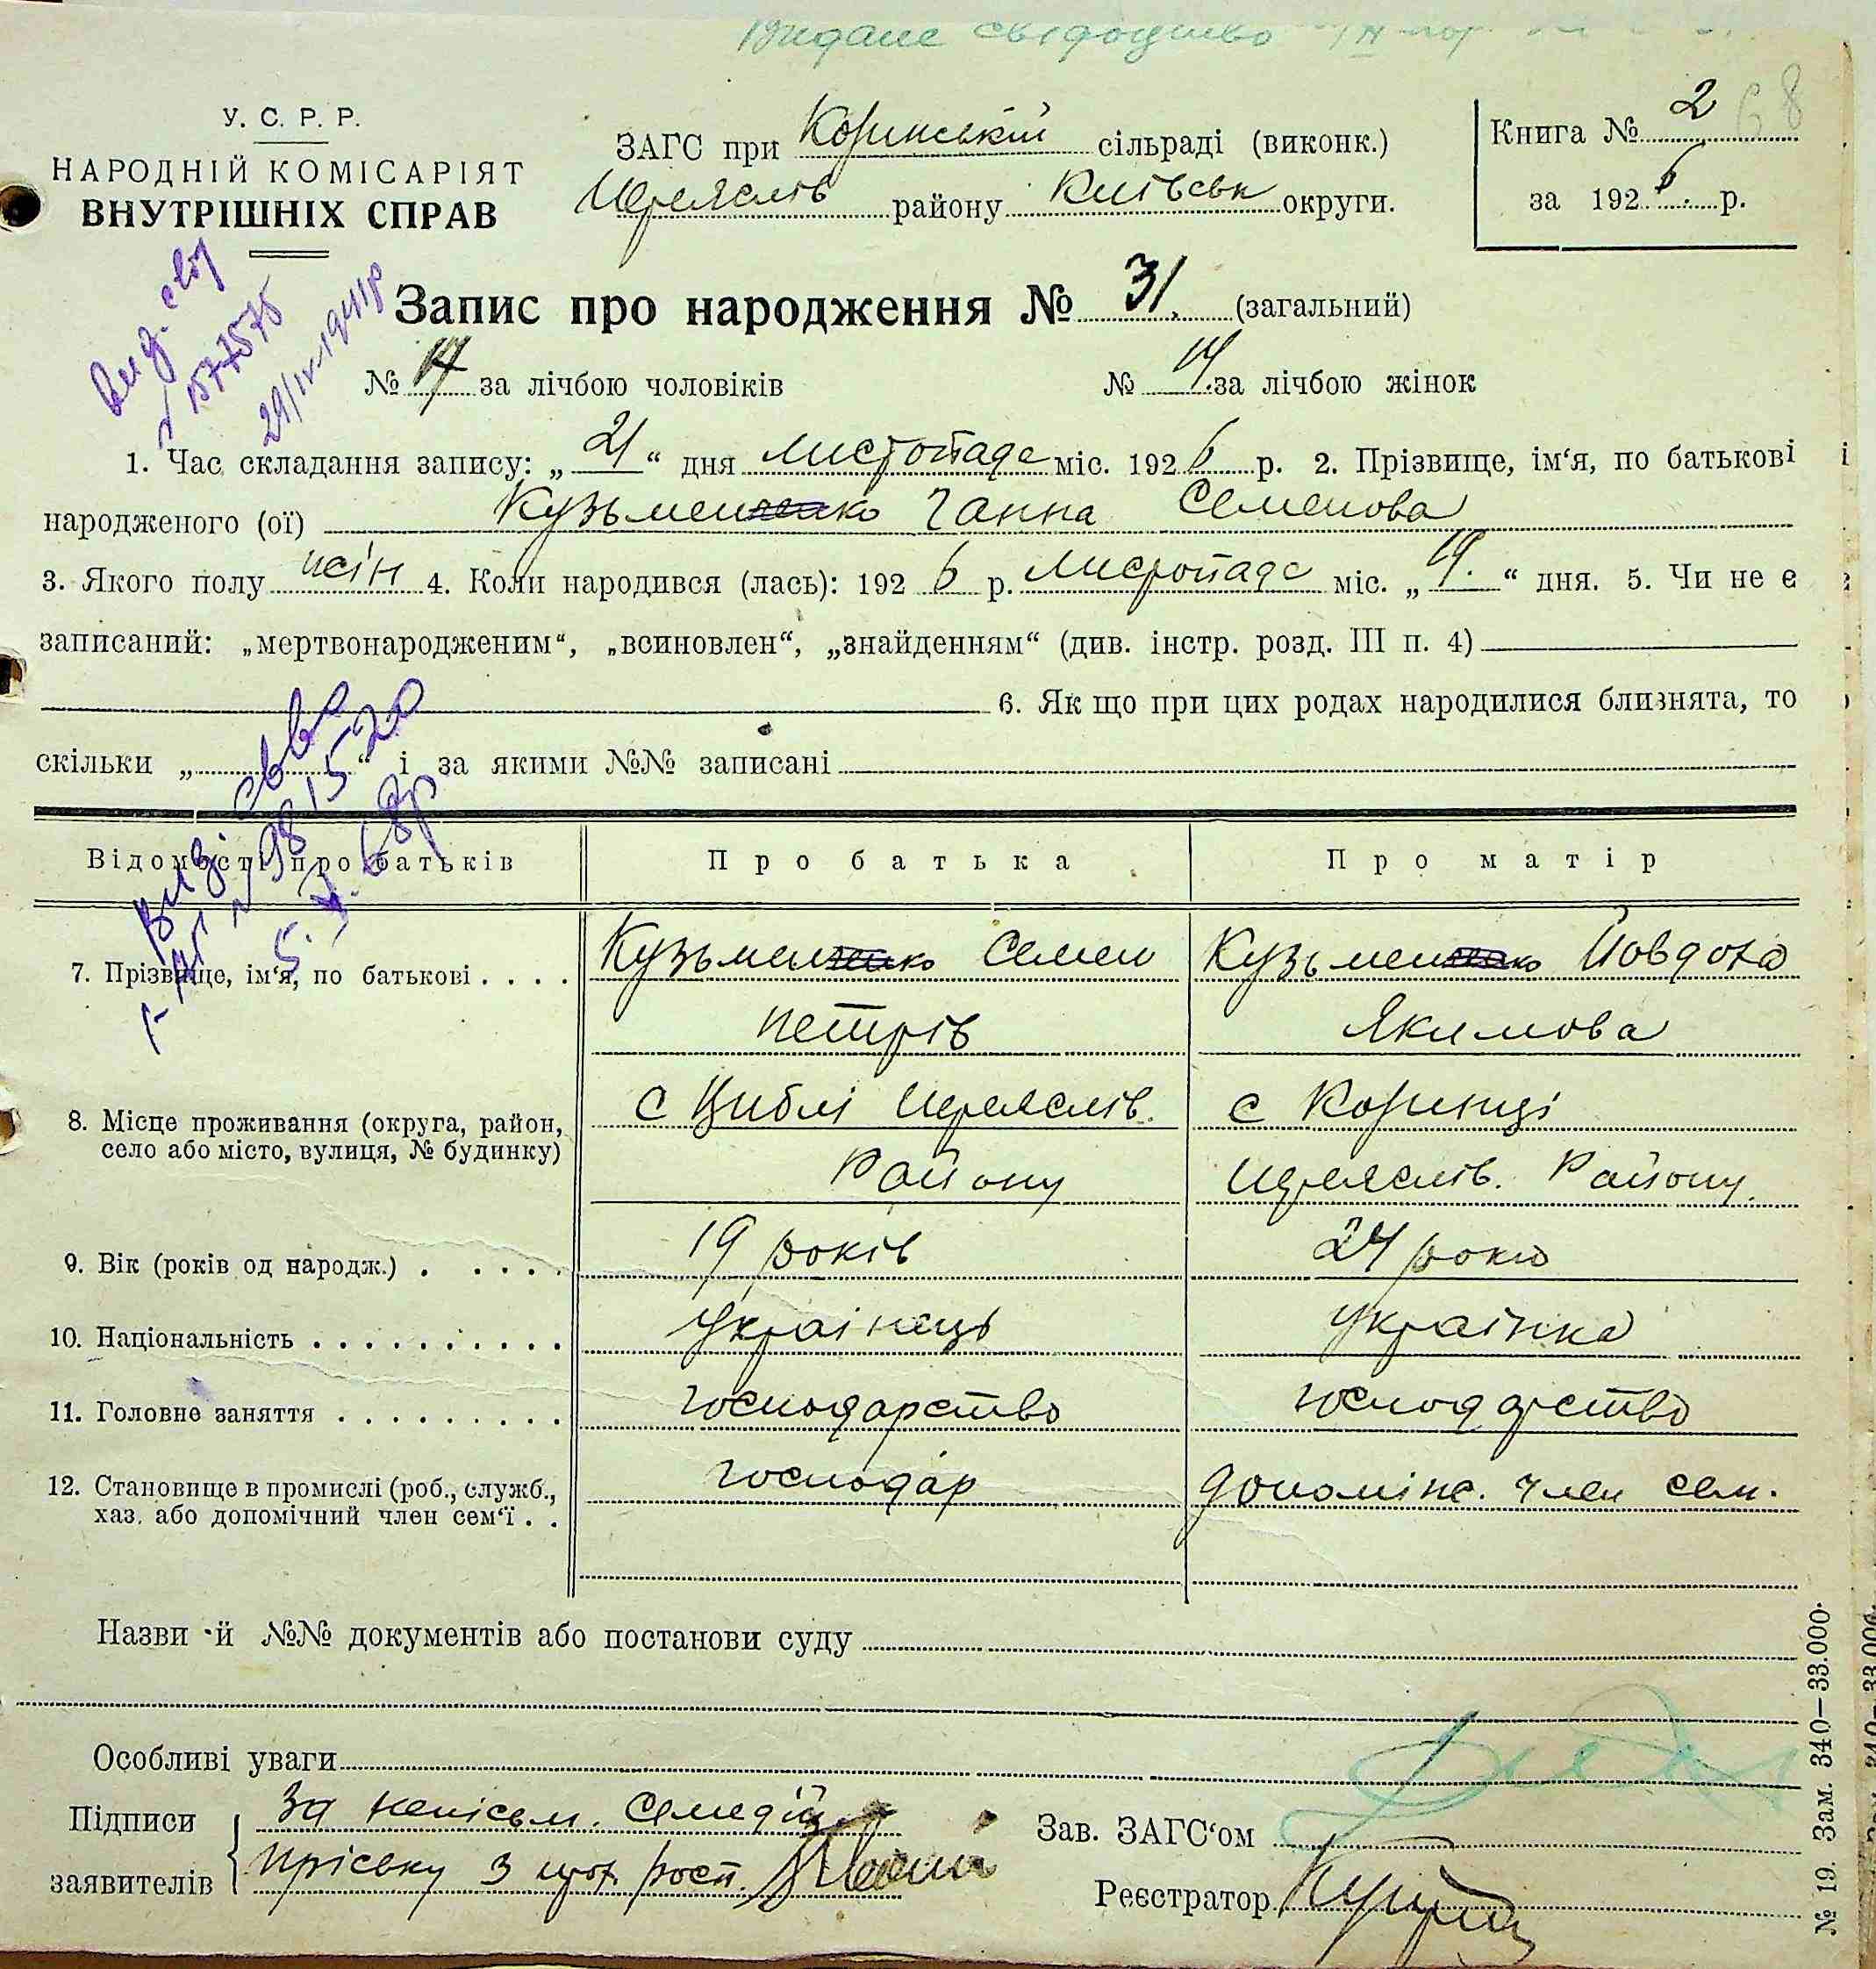 Видане свідоцтво
68
У. С. Р. Р.
НАРОДНІЙ КОМІСАРІЯТ
ВНУТРІШНІХ СПРАВ
ЗАГС при Корінській сільраді (виконк.)
Переяслів району Київськ округи.
Книга № 2
за 1926 р.
Вид. свід
№ 1577575
29/IV-1941р
Запис про народження № 31. (загальний)
№ 17 за лічбою чоловіків № 14. за лічбою жінок
1. Час складання запису: „21“ дня листопада міс. 1926 р. 2. Прізвище, ім‘я, по батькові
народженого (ої) Кузьменко Ганна Семенова
3. Якого полу жін 4. Коли народився (лась): 1926 р. листопада міс. „19.“ дня. 5. Чи не є
записаний: „мертвонародженим“, „всиновлен“, „знайденням“ (див. інстр. розд. III п. 4)
6. Як що при цих родах народилися близнята, то
скільки „ “ і за якими №№ записані
Відомості про батьків Про батька Про матір
7. Прізвище, ім‘я, по батькові . . . . Кузьменко Семен Кузьменко Йовдоха
Петрів Якимова
8. Місце проживання (округа, район,
село або місто, вулиця, № будинку)
с Циблі Переяслів. с Корінці
Району Переяслів. Району.
9. Вік (років од народж.) . . . . . 19 років 24 роки
10. Національність . . . . . . . . . . українець українка
11. Головне заняття . . . . . . . . . . господарство господарство
12. Становище в промислі (роб., служб.,
хаз. або допомічний член сем‘ї . .
господар допоміж. член сем.
Назви й №№ документів або постанови суду
Особливі уваги
Підписи
заявителів
За неписьм.
Пріську з
Зав. ЗАГС‘ом
Реєстратор
№ 19. Зам. 340—33.000.